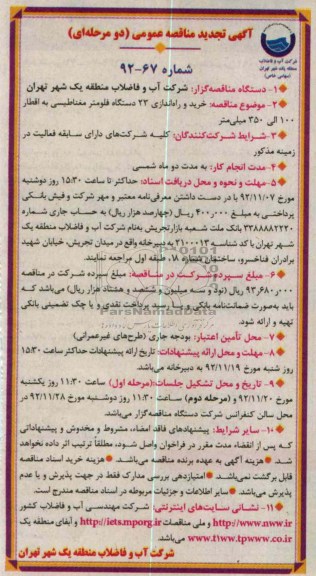 آگهی تجدید مناقصه عمومی (دو مرحله‌ای)
شماره ۶۷-۹۲
شرکت آب و فاضلاب
منطقه یک شهر تهران
(سهامی خاص)
۱- دستگاه مناقصه‌گزار: شرکت آب و فاضلاب منطقه یک شهر تهران
۲- موضوع مناقصه: خرید و راه‌اندازی ۲۳ دستگاه فلومتر مغناطیسی به اقطار
۱۰۰ الی ۳۵۰ میلی‌متر
۳- شرایط شرکت‌کنندگان: کلیه شرکت‌های دارای سابقه فعالیت در
زمینه مذکور
۴- مدت انجام کار: به مدت دو ماه شمسی
۵- مهلت و نحوه و محل دریافت اسناد: حداکثر تا ساعت ۱۵:۳۰ روز دوشنبه
مورخ ۹۲/۱۱/۰۷ با در دست داشتن معرفی‌نامه معتبر و مهر شرکت و فیش بانکی
پرداختی به مبلغ ۴۰۰,۰۰۰ ریال (چهارصد هزار ریال) به حساب جاری شماره
بانک ملت شعبه بازار تجریش به‌نام شرکت آب و فاضلاب منطقه یک
شهر تهران با کد شناسه ۲۱۰۰۰۱۳ به دبیرخانه واقع در میدان تجریش، خیابان شهید
برادران فناخسرو، ساختمان شماره ۱۸، طبقه اول مراجعه نمایند.
۶- مبلغ سپرده شرکت در مناقصه: مبلغ سپرده شرکت در مناقصه
۹۳,۶۸۰,۰۰۰ ریال (نود و سه میلیون و ششصد و هشتاد هزار ریال) می‌باشد که
باید به‌صورت ضمانت‌نامه بانکی و یا رسید پرداخت نقدی و یا چک تضمینی بانکی
تهیه و ارائه شود.
۷- محل تأمین اعتبار: بودجه جاری (طرح‌های غیرعمرانی)
۸- مهلت و محل ارائه پیشنهادات: تاریخ ارائه پیشنهادات حداکثر ساعت ۱۵:۳۰
روز شنبه مورخ ۹۲/۱۱/۱۹ به دبیرخانه می‌باشد.
۹- تاریخ و محل تشکیل جلسات: (مرحله اول) ساعت ۱۱:۳۰ روز یکشنبه
مورخ ۹۲/۱۱/۲۰ و (مرحله دوم) ساعت ۱۱:۳۰ روز دوشنبه مورخ ۹۲/۱۱/۲۸ در
محل سالن کنفرانس شرکت دستگاه مناقصه‌گزار می‌باشد.
۱۰- سایر شرایط: پیشنهادهای فاقد امضاء، مشروط و مخدوش و پیشنهاداتی
که پس از انقضاء مدت مقرر در فراخوان واصل شود، مطلقاً ترتیب اثر داده نخواهد
شد هزینه آگهی به عهده برنده مناقصه می‌باشد. هزینه خرید اسناد مناقصه
قابل برگشت نمی‌باشد. امتیازدهی بررسی مدارک فقط در جهت پذیرش و یا عدم
پذیرش می‌باشد. سایر اطلاعات و جزئیات مربوطه در اسناد مناقصه مندرج است.
۱۱- نشانی سایت‌های اینترنتی: شرکت مهندسی آب و فاضلاب کشور
http://www.nww.ir و ملی مناقصات http://iets.mporg.ir و آبفای منطقه یک
www.t1ww.tpww.co.ir می‌باشد.
شرکت آب و فاضلاب منطقه یک شهر تهران
ParsNamadData